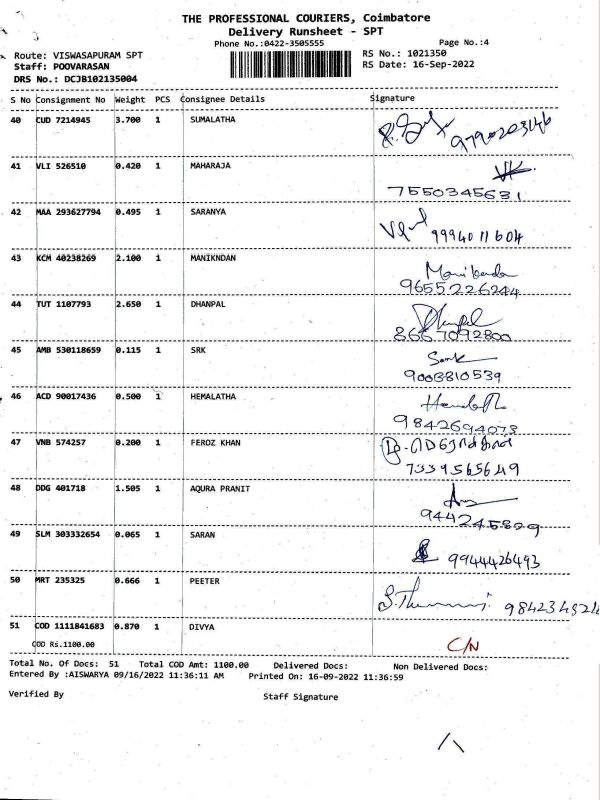 THE PROFESSIONAL COURIERS, Coimbatore
Delivery Runsheet - SPT
Phone No.:0422-3505555 Page No.:4
Route: VISWASAPURAM SPT RS No.: 1021350
Staff: POOVARASAN RS Date: 16-Sep-2022
DRS No.: DCJB102135004
S No Consignment No Weight PCS Consignee Details Signature
40 CUD 7214945 3.700 1 SUMALATHA
9790203146
41 VLI 526510 0.420 1 MAHARAJA
7550345631
42 MAA 293627794 0.495 1 SARANYA
9994011604
43 KCM 40238269 2.100 1 MANIKNDAN Manikandan
9655226244
44 TUT 1107793 2.650 1 DHANPAL Dhanpal
8667092800
45 AMB 530118659 0.115 1 SRK
9003810539
46 ACD 90017436 0.500 1 HEMALATHA
9842694073
47 VNB 574257 0.200 1 FEROZ KHAN
7339565649
48 DDG 401718 1.505 1 AQURA PRANIT
9442245809
49 SLM 303332654 0.065 1 SARAN 9944426493
50 MRT 235325 0.666 1 PEETER
51 COD 1111841683 0.870 1 DIVYA C/N
COD Rs.1100.00
Total No. Of Docs: 51 Total COD Amt: 1100.00 Delivered Docs: Non Delivered Docs:
Entered By :AISWARYA 09/16/2022 11:36:11 AM Printed On: 16-09-2022 11:36:59
Verified By Staff Signature